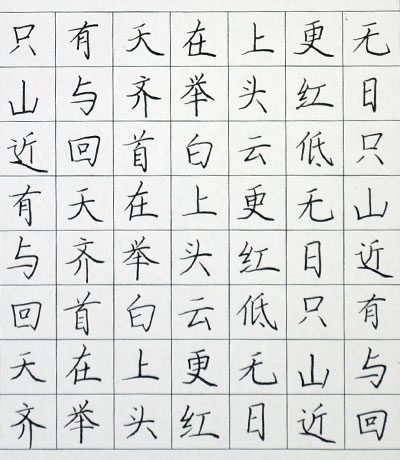 只有天在上更无
山与齐举头红日
近回首白云低只
有天在上更无山
与齐举头红日近
回首白云低只有
天在上更无山与
齐举头红日近回